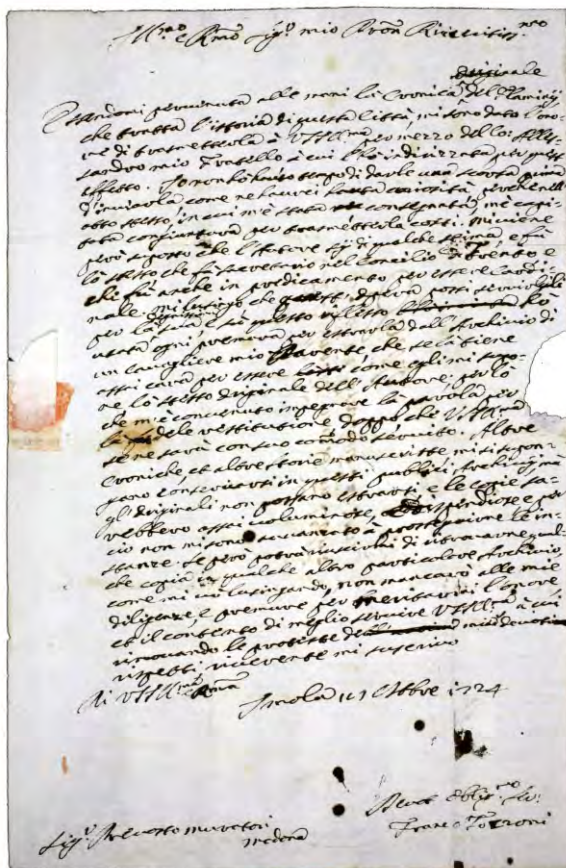 Ill.mo e Rmo Sig.r mio Pron Riveritiss.mo
originale
Essendomi pervenuta alle mani la Cronica del Flaminij
che tratta l'istoria di questa Città, mi sono dato l'ono-
re di trasmetterla à VSIll.ma per mezzo del Co: Ales-
sandro mio Fratello à cui l'hò indirizzata per quest
effetto. Io non hò havuto tempo di darle una scorta prima
d'inviarla, come ne havevo curiosità, perche nell'
atto stesso, in cui m'è stata consegnata, m'è capi-
tata congiuntura per trasmetterla costì. Mi viene
però supposto che l'Autore sij di qualche stima, e fù
lo stesso che fù secretario nel concilio di Trento e
che fù anche in predicamento per essere Cardi-
nale. Mi lusingo che possi servirle
per la sua e sù questo riflesso hò
usata ogni premura per estraerla dall'Archivio di
un Cavagliere mio Parente, che se la tiene
assai cara per essere come egli mi suppo-
ne lo stesso originale dell'Autore, per lo
che m'è convenuto impegnare la parola per
la restitutione doppo che VSIll.ma
se ne sarà con suo comodo servito. Altre
Croniche, et altre storie manuscritte mi si suppon-
gano conservarsi in questi publici Archivij mà
gli originali non possano estraersi, e le copie sa-
rebbero assai voluminose, e dispendiose e per
ciò non mi sono avanzato à proseguire le in-
stanze. Se però potrà riuscirmi di ritrovarne qual-
che copia in qualche altro particolare Archivio,
come mi và lusingando, non mancarò alle mie
diligenze, e premure per meritarmi l'onore
et il contento di meglio servire VSIll.ma à cui
rinovando le proteste de miei devotiss.
rispetti riverente mi suscrivo
Di VSIll.ma e Rma
Imola 1724
Devot. Obblig.mo Se:
Sig.r Prevosto Muratori
Modena
Franc.o Tozzoni